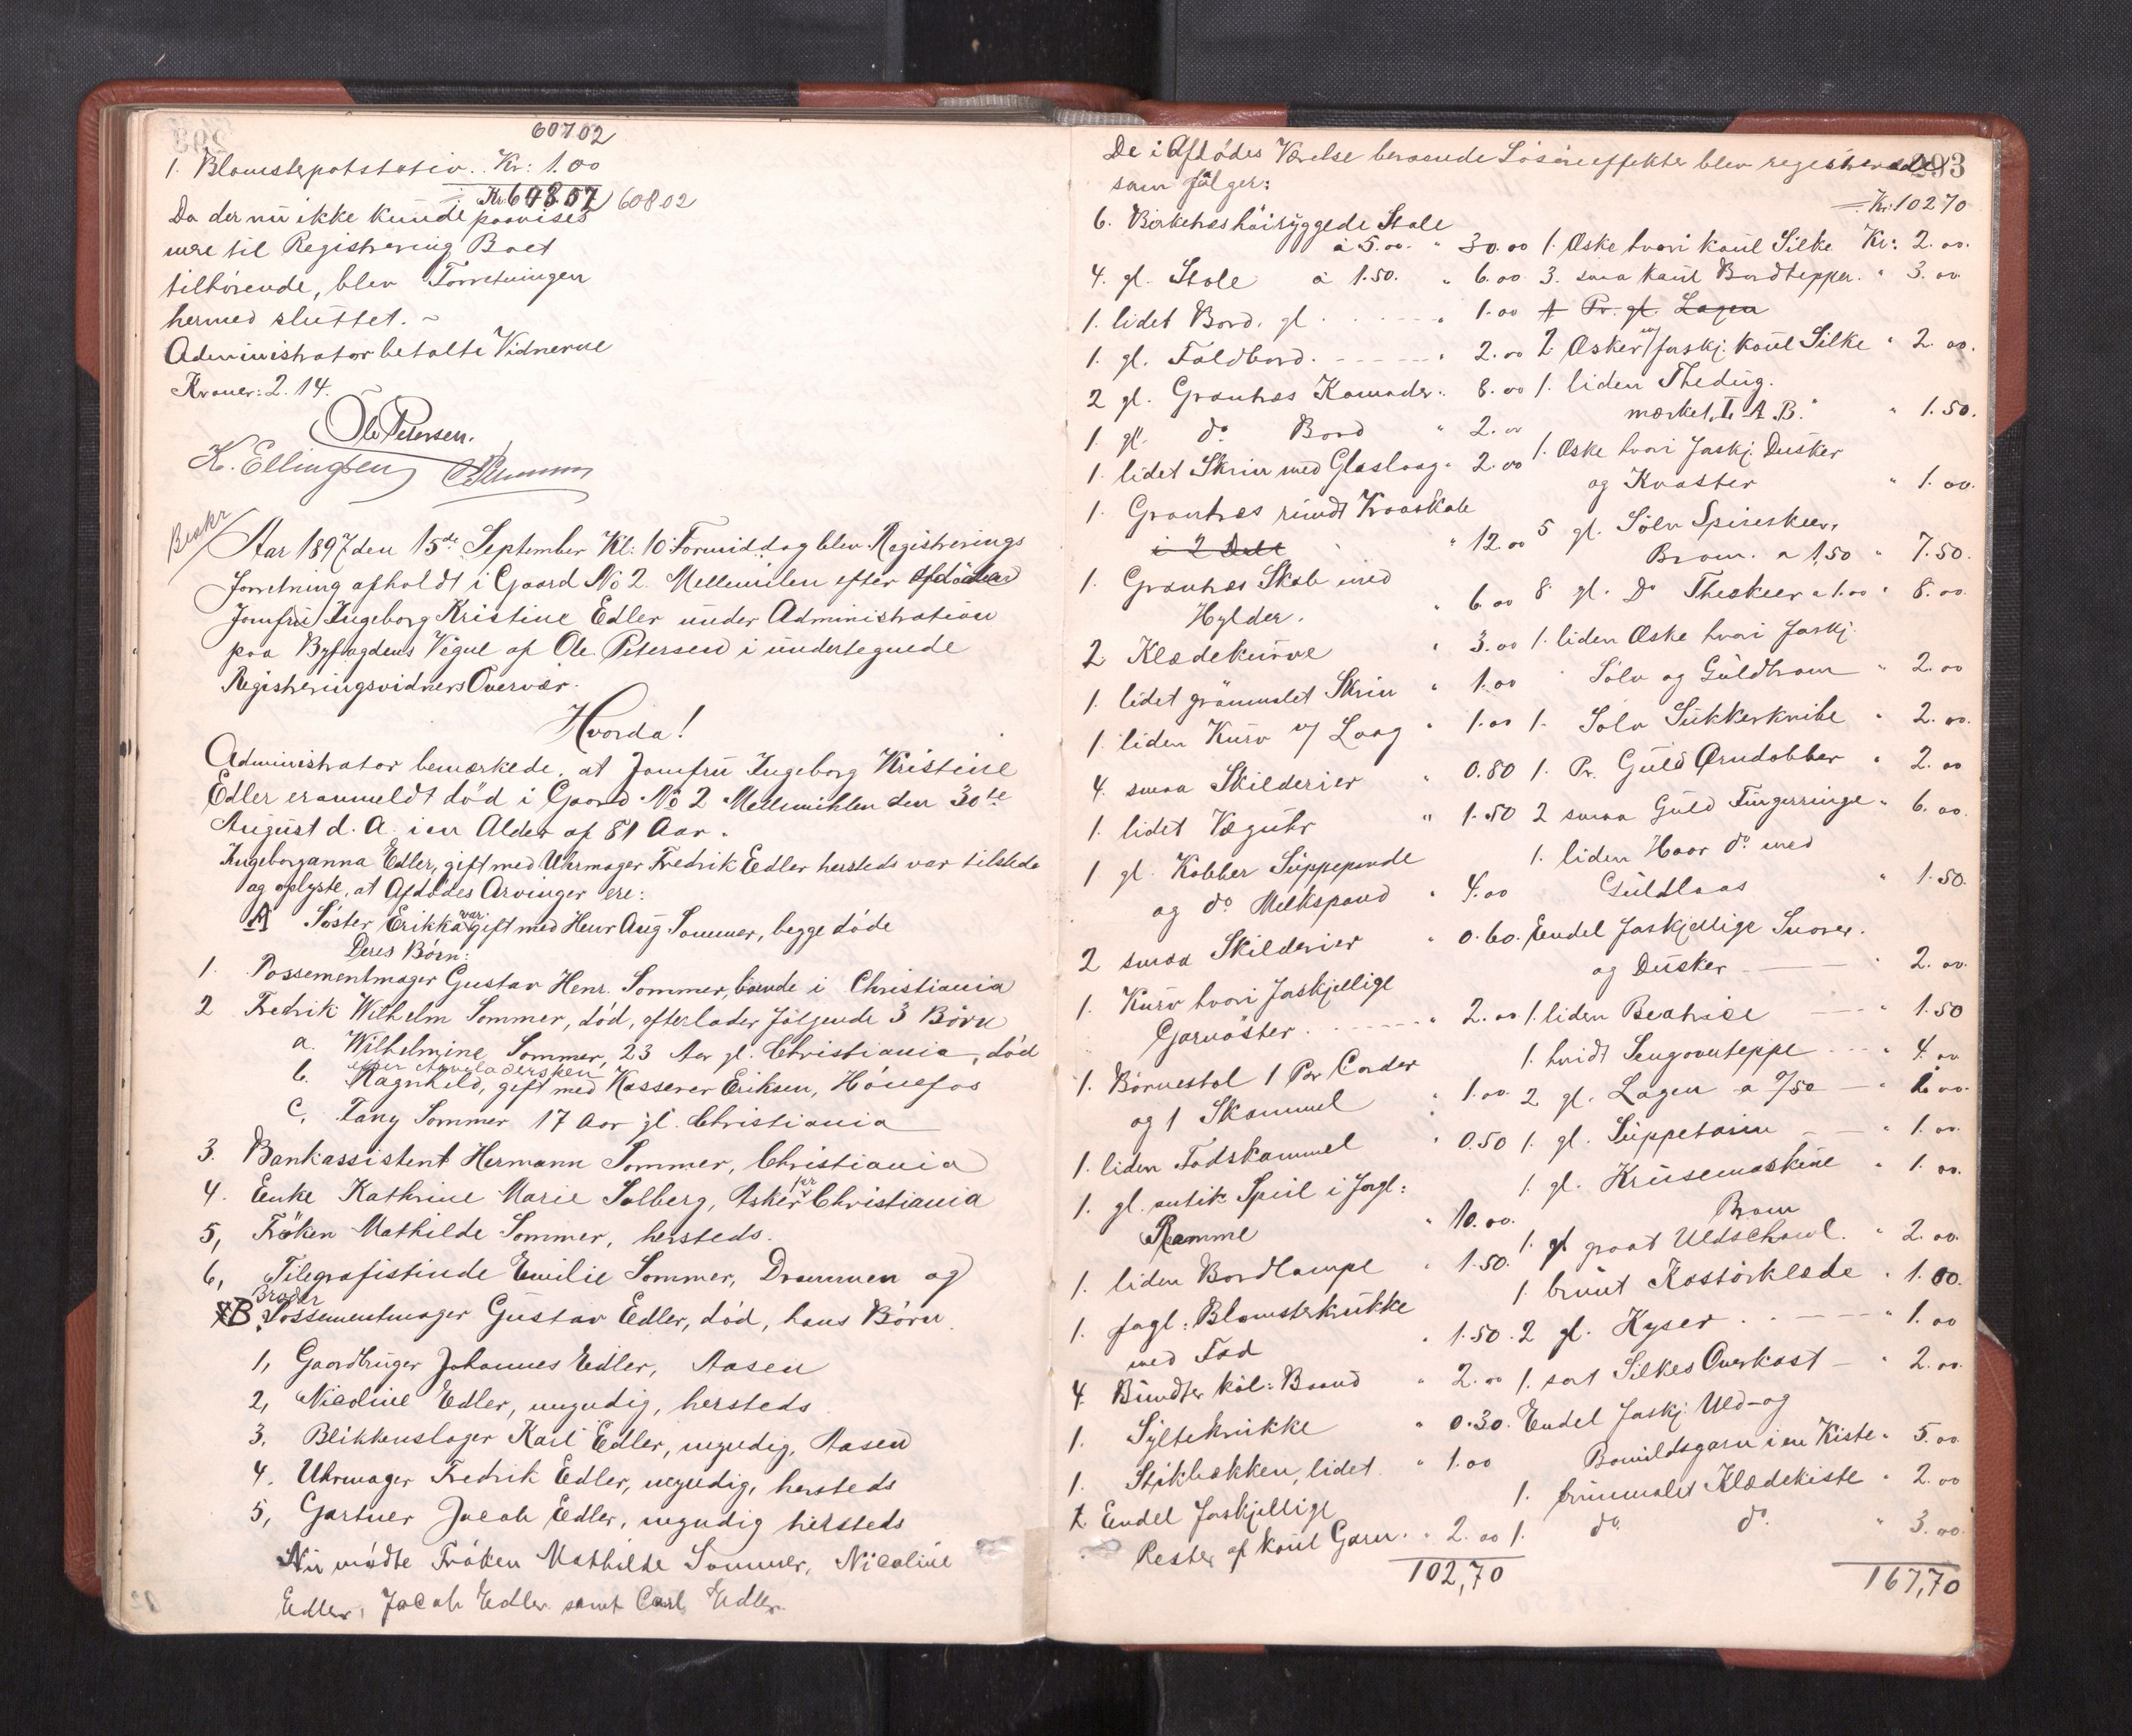 60702
1. Blomsterpotstativ. Kr: 1.00
Kr. 60802 60802
Da der nu ikke kunde paavises
mere til Registrering Boet
tilhörende, blev Forretningen
hermed sluttet. -
Administrator betalte Vidnerne
Kroner: 2.14.
Ole Petersen.
K. Ellingsen
Beskr
Aar 1897 den 15de September Kl: 10 Formiddag blev Registrerings
forretning afholdt i Gaard No 2 Mellemilen efter afdöde
Jomfru Ingeborg Kristine Edler under Administration
paa Byfogdens Vegne af Ole Petersen i undertegnede
Registreringsvidners Overvær.
Hvorda!
Administrator bemærkede, at Jomfru Ingeborg Kristine
Edler er anmeldt död i Gaard No 2 Mellemihlen den 30te
August d. A. i en Alder af 81 Aar.
Ingeborganna Edler, gift med Uhrmager Fredrik Edler hersteds var tilstede
og oplyste, at Afdödes Arvinger ere:
A Söster Erikka var gift med Henr Aug Sommer, begge döde
Deres Börn:
1. Possementmager Gustav Henr. Sommer, boende i Christiania
2 Fredrik Wilhelm Sommer, död, efterlader fölgende 3 Börn
a. Wilhelmine Sommer, 23 Aar gl. Christiania, död
efter Arveladersken
b. Ragnhild, gift med Kasserer Eriksen, Hönefos
c. Fany Sommer 17 Aar gl. Christiania
3. Bankassistent Hermann Sommer, Christiania
4. Enke Kathrine Marie Solberg, Asker per Christiania
5, Fröken Mathilde Sommer, hersteds.
6, Telegrafistinde Emilie Sommer, Drammen og
Broder
B. Possementmager Gustav Edler, död, hans Börn
1, Gaardbruger Johannes Edler, Aasen
2, Nicoline Edler, myndig, hersteds
3. Blikkenslager Karl Edler, myndig, Aasen
4. Uhrmager Fredrik Edler, myndig, hersteds
5, Gartner Jacob Edler, myndig hersteds
Nu mödte Fröken Mathilde Sommer, Nicoline
Edler, Jacob Edler samt Carl Edler.
293
De i Afdödes Værelse beroende Lösöreeffekter blev registrerede
som fölger:
Kr. 102 70
6. Birketræs höiryggede Stole
à 5.00. " 30.00
4. gl. Stole à 1.50. " 6.00
1. lidet Bord. gl. " 1.00
1. gl. Foldbord. " 2.00
2 gl. Grantræs Komoder " 8.00
1. gl. do Bord " 2.00
1. lidet Skrin med Glaslaag " 2.00
1. Grantræs rundt Kroaskab
i 2 Dele " 12.00
1. Grantræs Skab med
Hylder. " 6.00
2 Klædekurve " 3.00
1. lidet grönmalet Skrin " 1.00
1. liden Kurv m/ Laag " 1.00
4. smaa Skilderier " 0.80
1. lidet Væguhr " 1.50
1 gl. Kobber Suppepande
og do Melkspand " 4.00
2 smaa Skilderier " 0.60.
1. Kurv hvori forskjellige
Garnöster " 2.00
1. Börnestol 1 Par Corder
og 1 Skammel " 1.00
1. liden Fodskammel " 0.50
1. gl. antik Speil i forgl:
Ramme " 10.00.
1. liden Bordlampe " 1.50.
1. forgl: Blomsterkrukke
med Fod " 1.50.
4 Bundter köl: Baand " 2.00
1. Syltekrukke " 0.30.
1. Stikbækken, lidet. " 1.00
Endel forskjellige
Rester af koul Garn. " 2.00
102,70
1. Æske hvori koul Silke Kr: 2.00.
3. smaa koul Bordtepper. " 3.00
1 Pr. gl. Lagen
2 Æsker m/ forskj. koul Silke " 2.00.
1. liden Thedug.
mærket "I. A. B." " 1.50.
1. Æske hvori forskj. Dusker
og Kvaster " 1.00.
5 gl. Sölv Spiseskeer,
Bram. a 1,50 " 7.50.
8 gl. Do Theskeer a 1.00 " 8.00.
1. liden Æske hvori forskj.
Sölv og Guldbram " 2.00
1. Sölv Sukkerknibe " 2.00.
1. Pr. Guld Ørndobber " 2.00
2 smaa Guld Fingerringe " 6.00.
1. liden Haar do med
Guldlaas " 1.50.
Endel forskjellige Snorer.
og Dusker " 2.00.
1. liden Beatrice " 1.50
1. hvidt Sengoverteppe " 4.00
2 gl. Lagen a 0/50 " 1.00.
1. gl. Suppeterin " 1.00
1. gl. Krusemaskine " 1.00.
1. gl graat Uldschawl. " 2.00.
1. brunt Kastörklæde " 1.00.
2 gl. Kyser " 1.00
1. sort Silkes Overkast " 2.00.
Endel forskj. Uld- og
Bomuldsgarn i en Kiste " 5.00
1. brunmalet Klædekiste " 2.00
1. do. do. " 3.00.
167,70